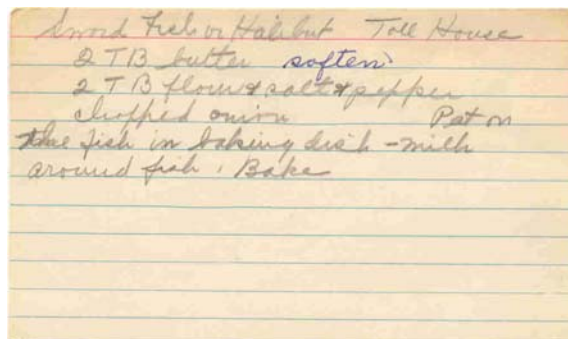 Sword Fish or Halibut Toll House
2 TB butter soften
2 TB flour & salt & pepper
chopped onion Pat on
the fish in baking dish - milk
around fish. Bake